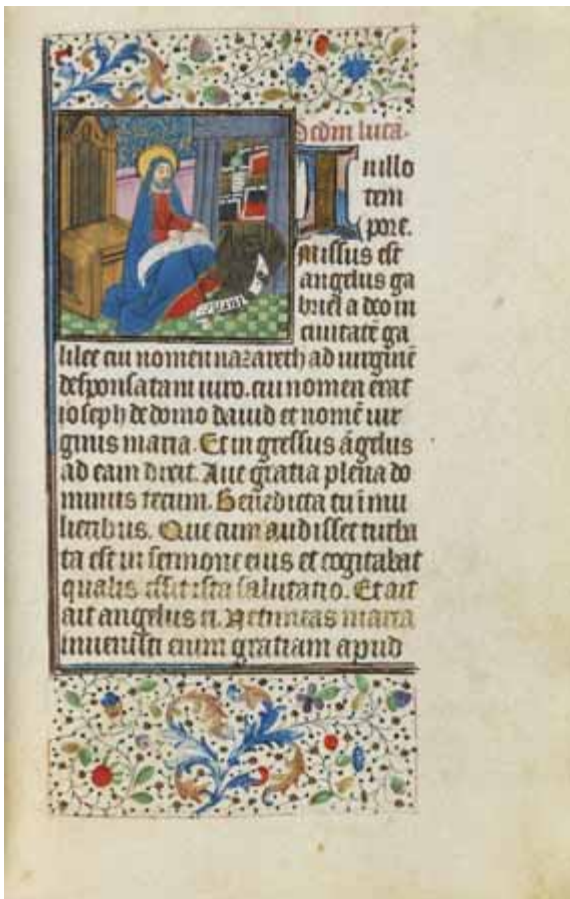 Scdm luca.
In illo
tem
pore.
Missus est
angelus ga
briel a deo in
ciuitatē ga
lilee cui nomen nazareth ad uirginē
desponsatam uiro. cui nomen erat
ioseph de domo dauid et nomē uir
ginis maria. Et ingressus āgelus
ad eam dixit. Aue gratia plena do
minus tecum. Benedicta tu ī mu
lieribus. Que cum audisset turba
ta est in sermone eius et cogitabat
qualis esset ista salutatio. Et ait
ait angelus ei. Ne timeas maria
inuenisti enim gratiam apud